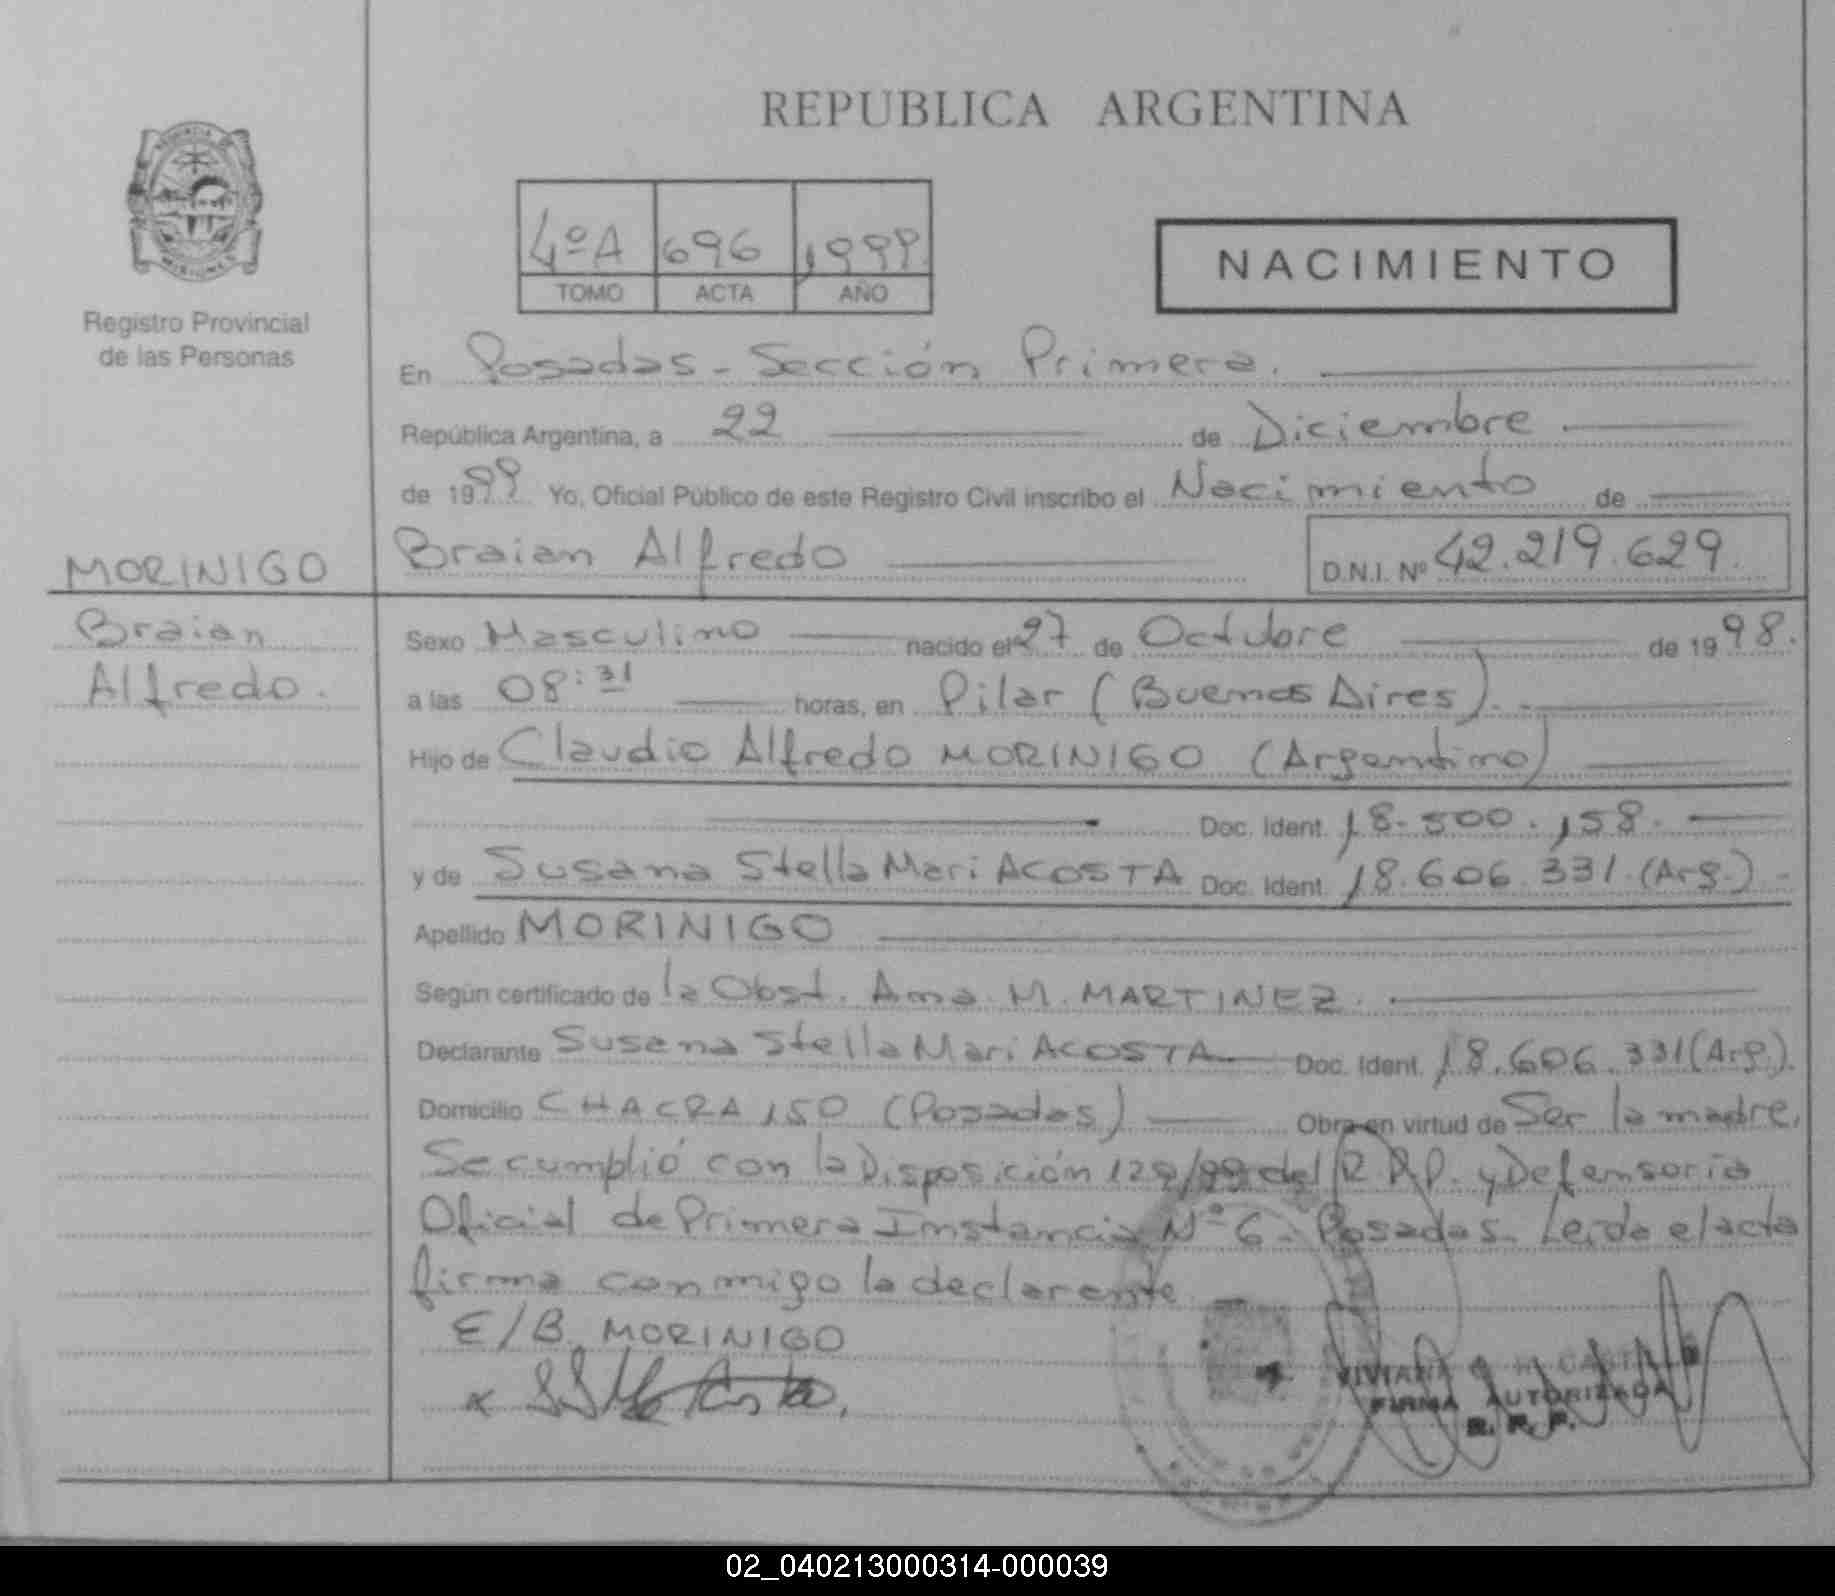 REPUBLICA ARGENTINA
PROVINCIA
MISIONES
Registro Provincial
de las Personas
4ºA 696 1999.
TOMO ACTA AÑO
NACIMIENTO
En Posadas - Sección Primera.
República Argentina, a 22 de Diciembre
de 1999 Yo, Oficial Público de este Registro Civil inscribo el Nacimiento de
MORINIGO
Braian
Alfredo.
Braian Alfredo D.N.I. Nº 42.219.629.
Sexo Masculino nacido el 27 de Octubre de 1998.
a las 08:31 horas, en Pilar (Buenos Aires).
Hijo de Claudio Alfredo MORINIGO (Argentino)
Doc. Ident. 18.500.158.
y de Susana Stella Mari ACOSTA Doc. Ident. 18.606.331.(Arg.)
Apellido MORINIGO
Según certificado de la Obst. Ana M. MARTINEZ.
Declarante Susana Stella Mari ACOSTA Doc. Ident. 18.606.331(Arg.).
Domicilio CHACRA 150 (Posadas) Obra en virtud de Ser la madre.
Se cumplió con la Disposición 129/99 del R.P.P. y Defensoría
Oficial de Primera Instancia Nº 6 - Posadas - Leída el acta
firma conmigo la declarante
E/B. MORINIGO
VIVIANA
FIRMA AUTORIZADA
R. P. P.
02_040213000314-000039